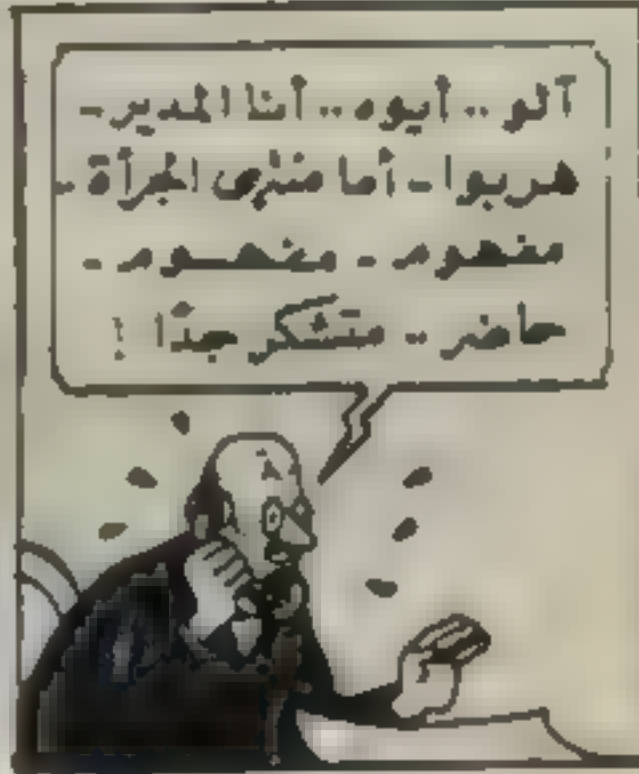 آلو .. أيوه .. أنا المدير -
هربوا - أما منتهى الجرأة -
مفهوم - مفهوم -
حاضر .. متشكر جدًا !